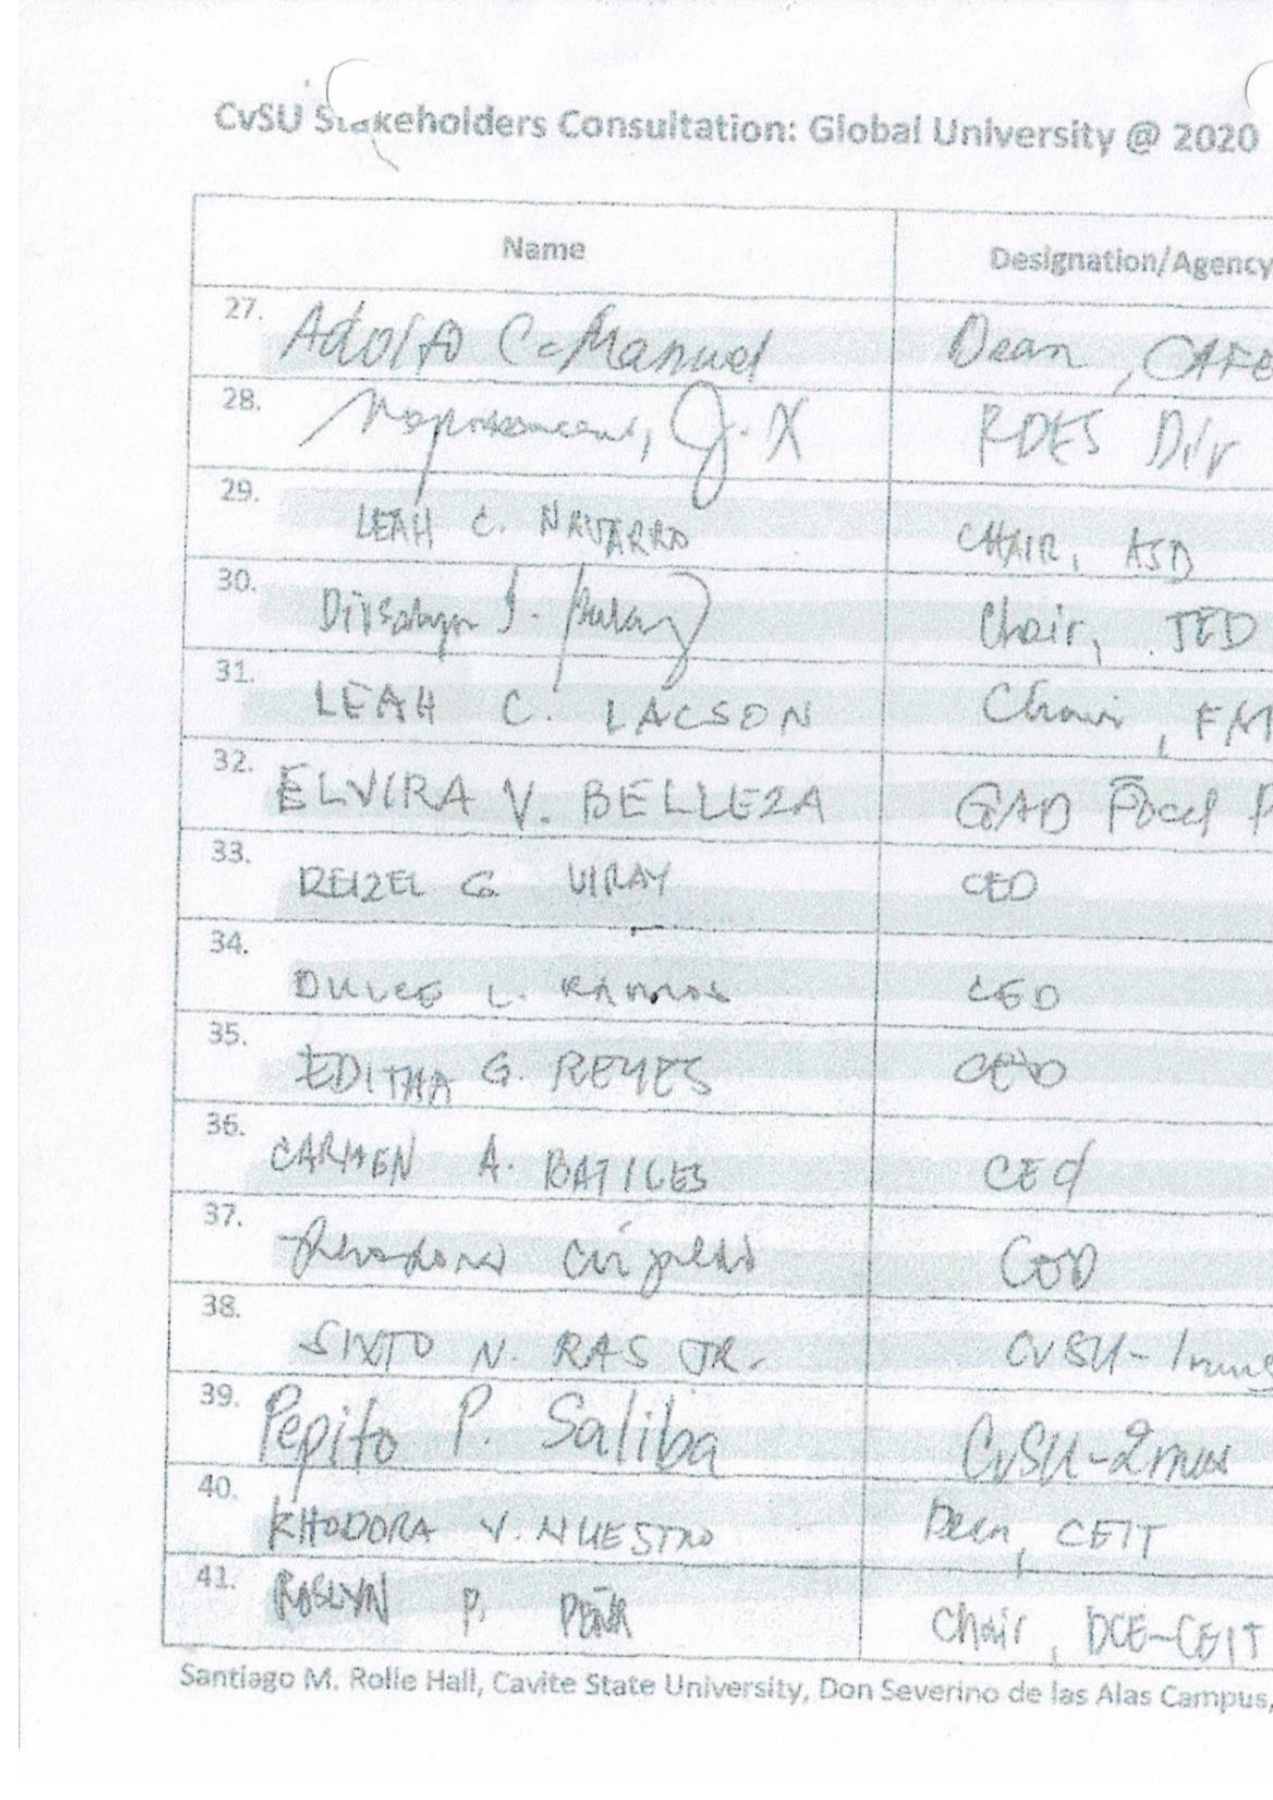 CvSU Stakeholders Consultation: Global University @ 2020
Name Designation/Agency
27. Adolfo C. Manuel Dean, CAFE
28. J. X RDES Div
29. LEAH C. NAVARRO CHAIR, ASD
30. J. Chair, TED
31. LEAH C. LACSON Chair,
32. ELVIRA V. BELLEZA GAD Focal
33. REIZEL G VIRAY CED
34. DULCE L. RAMOS CED
35. EDITHA G. REYES CED
36. CARMEN A. BATILES CEd
37. CED
38. SIXTO N. RAS JR. CvSU-
39. Pepito P. Saliba CvSU-Imus
40. KHODORA V. NUESTRO Dean, CEIT
41. ROSLYN P. PEÑA Chair, DCE-CEIT
Santiago M. Rolle Hall, Cavite State University, Don Severino de las Alas Campus,